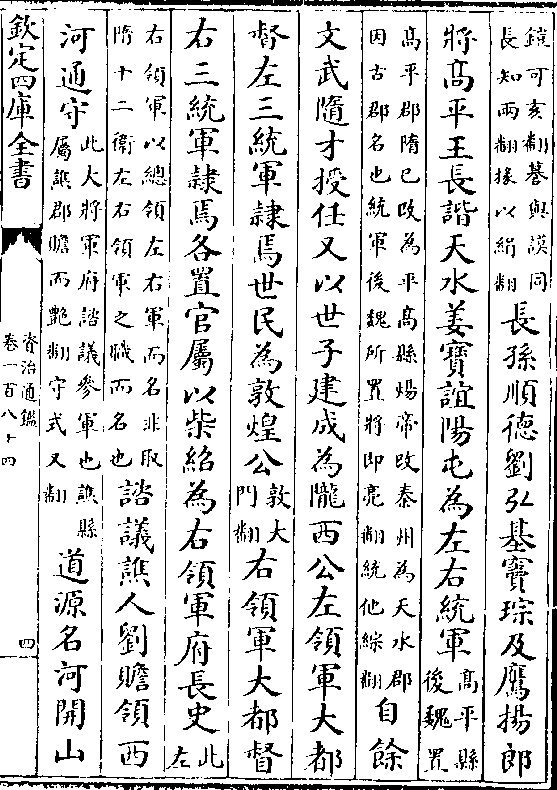 鎧可亥翻謩與謨同
長知兩翻掾以絹翻
長孫順德劉弘基竇琮及鷹揚郎
將高平王長諧天水姜寶誼陽屯為左右統軍
高平縣
後魏置
高平郡隋已改為平高縣煬帝改秦州為天水郡
因古郡名也統軍後魏所置將即亮翻統他綜翻
自餘
文武隨才授任又以世子建成為隴西公左領軍大都
督左三統軍隸焉世民為敦煌公
敦大
門翻
右領軍大都督
右三統軍隸焉各置官屬以柴紹為右領軍府長史
此
左
右領軍以總領左右軍而名非取
隋十二衛左右領軍之職而名也
諮議譙人劉贍領西
河通守
此大將軍府諮議參軍也譙縣
屬譙郡贍而艷翻守式又翻
道源名河開山
欽定四庫全書
資治通鑑
卷一百八十四
四